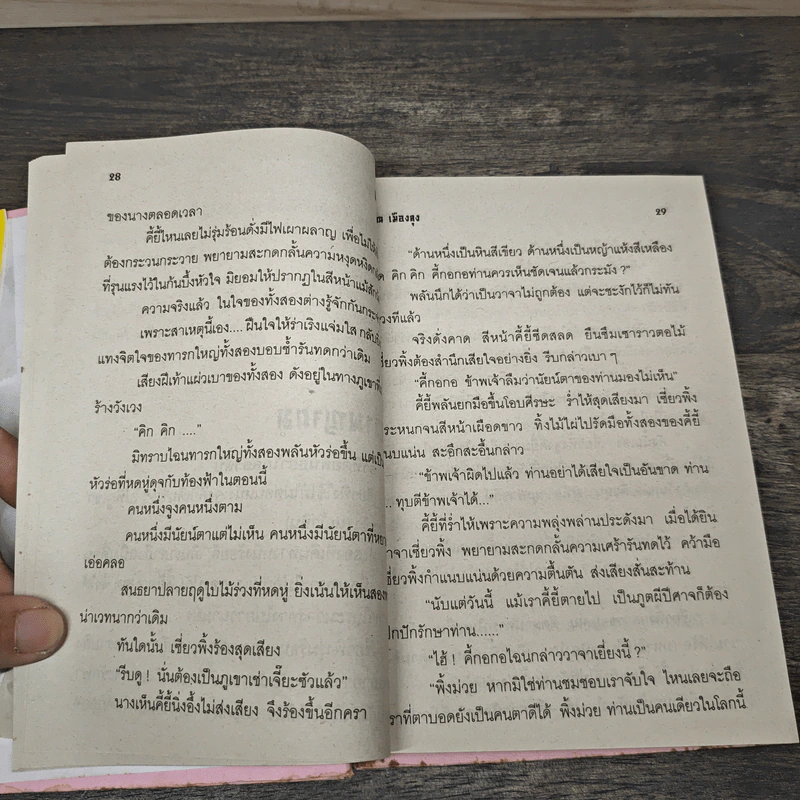 28
ของนางตลอดเวลา
คี้ยี้ไหนเลยไม่รุ่มร้อนดั่งมีไฟเผาผลาญ เพื่อไม่ให้
ต้องกระวนกระวาย พยายามสะกดกลั้นความหงุดหงิด
ที่รุนแรงไว้ในก้นบึ้งหัวใจ มิยอมให้ปรากฏในสีหน้าแม้สัก
ความจริงแล้ว ในใจของทั้งสองต่างรู้จักกัน
เพราะสาเหตุนี้เอง.... ฝืนใจให้ร่าเริงแจ่มใส กลับ
แทงจิตใจของทารกใหญ่ทั้งสองบอบช้ำรันทดกว่าเดิม
เสียงฝีเท้าแผ่วเบาของทั้งสอง ดังอยู่ในทางภูเขา
ร้างวังเวง
“คิก คิก ....”
มิทราบไฉนทารกใหญ่ทั้งสองพลันหัวร่อขึ้น แต่
หัวร่อที่หดหู่ดุจกับท้องฟ้าในตอนนี้
คนหนึ่งจูงคนหนึ่งตาม
คนหนึ่งมีนัยน์ตาแต่ไม่เห็น คนหนึ่งมีนัยน์ตาที่
เอ่อคลอ
สนธยาปลายฤดูใบไม้ร่วงที่หดหู่ ยิ่งเน้นให้เห็นสอง
น่าเวทนากว่าเดิม
ทันใดนั้น เซี่ยวพิ้งร้องสุดเสียง
“รีบดู ! นั่นต้องเป็นภูเขาเช่าเจี๊ยะซัวแล้ว”
นางเห็นคี้ยี้นิ่งอึ้งไม่ส่งเสียง จึงร้องขึ้นอีกครา
น เมืองตุง
29
“ด้านหนึ่งเป็นหินสีเขียว ด้านหนึ่งเป็นหญ้าแห้งสีเหลือง
คิก คิก คี้กอกอท่านควรเห็นชัดเจนแล้วกระมัง ?”
พลันนึกได้ว่าเป็นวาจาไม่ถูกต้อง แต่จะชะงักไว้ก็ไม่ทัน
วงทีแล้ว
จริงดั่งคาด สีหน้าคี้ยี้ซีดสลด ยืนซึมเซาราวตอไม้
ซี่ยวพิ้งต้องสำนึกเสียใจอย่างยิ่ง รีบกล่าวเบา ๆ
“คี้กอกอ ข้าพเจ้าลืมว่านัยน์ตาของท่านมองไม่เห็น”
คี้ยี้พลันยกมือขึ้นโอบศีรษะ ร่ำไห้สุดเสียงมา เซี่ยวพิ้ง
ระหนกจนสีหน้าเผือดขาว ทิ้งไม้ไผ่ไปรัดมือทั้งสองของคี้ยี้
นบแน่น สะอึกสะอื้นกล่าว
“ข้าพเจ้าผิดไปแล้ว ท่านอย่าได้เสียใจเป็นอันขาด ท่าน
.. ทุบตีข้าพเจ้าได้...”
คี้ยี้ที่ร่ำไห้เพราะความพลุ่งพล่านประดังมา เมื่อได้ยิน
าจาเซี่ยวพิ้ง พยายามสะกดกลั้นความเศร้ารันทดไว้ คว้ามือ
ซี่ยวพิ้งกำแนบแน่นด้วยความตื้นตัน ส่งเสียงสั่นสะท้าน
“นับแต่วันนี้ แม้เราคี้ยี้ตายไป เป็นภูตผีปีศาจก็ต้อง
ปกปักรักษาท่าน......”
“ไฮ้ ! คี้กอกอไฉนกล่าววาจาเยี่ยงนี้ ?”
“พิ้งม่วย หากมิใช่ท่านชมชอบเราจับใจ ไหนเลยจะถือ
ราที่ตาบอดยังเป็นคนตาดีได้ พิ้งม่วย ท่านเป็นคนเดียวในโลกนี้